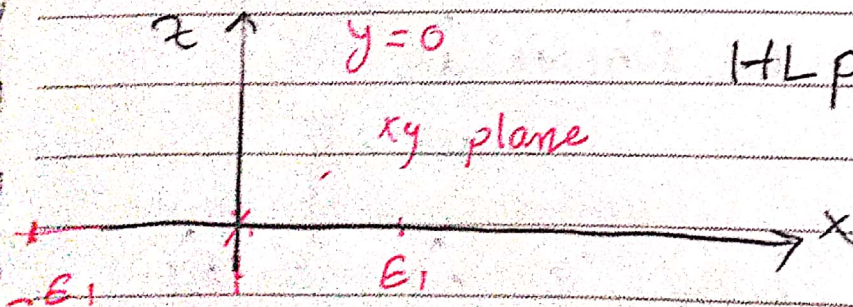 z y = 0
HLp
xy plane
x
-ε₁ ε₁